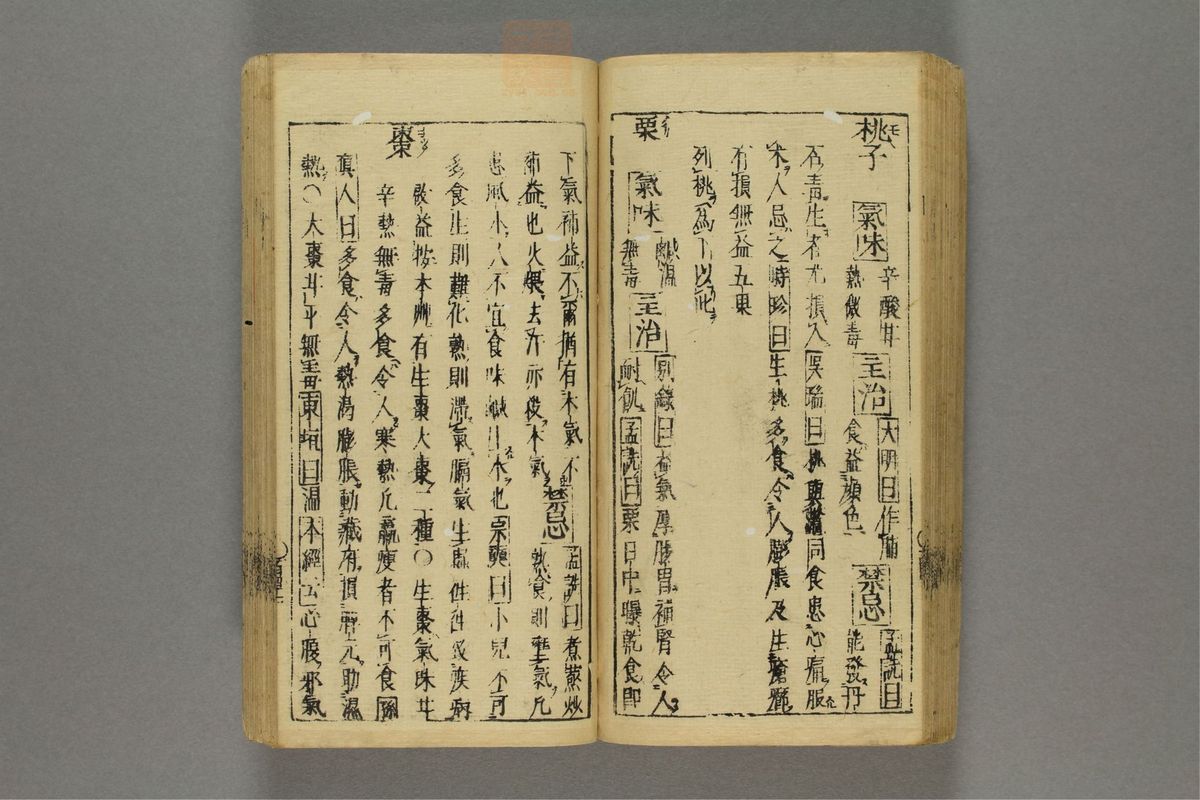 桃子 モヽ
氣味
辛酸甘
熱微毒
主治
大明曰作脯
食益顔色
禁忌
孟詵曰
能發丹
石毒生者尤損人吳瑞曰桃與鱉同食患心痛服
朮人忌之時珍曰生桃多食令人膨脹及生癰癤
有損無益五果
列桃爲下以此
栗
氣味
鹹温
無毒
主治
別錄曰益氣厚腸胃補腎令人
耐飢孟詵曰栗日中曝乾食即
下氣補益不爾猶有木氣不
補益也火煨去汗亦殺木氣
禁忌
孟詵曰煮蒸炒
熱食則壅氣凡
患風水人不宜食味鹹生水也宗奭曰小兒不可
多食生則難化熟則滯氣膈氣生蟲往往致疾病
棗
啟益按本艸有生棗大棗二種○生棗氣味甘
辛熱無毒多食令人寒熱凡羸瘦者不可食孫
眞人曰多食令人熱渴膨脹動藏府損脾元助濕
熱○大棗甘平無毒東垣曰温本經云心腹邪氣